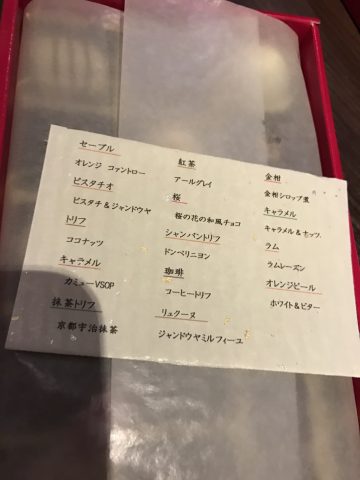 セーブル
オレンジ コアントロー
ピスタチオ
ピスタチ&ジャンドウヤ
トリフ
ココナッツ
キャラメル
カミューVSOP
抹茶トリフ
京都宇治抹茶
紅茶
アールグレイ
桜
桜の花の和風チョコ
シャンパントリフ
ドンペリニヨン
珈琲
コーヒートリフ
リュクーヌ
ジャンドウヤミルフィーユ
金柑
金柑シロップ煮
キャラメル
キャラメル&ナッツ
ラム
ラムレーズン
オレンジピール
ホワイト&ビター